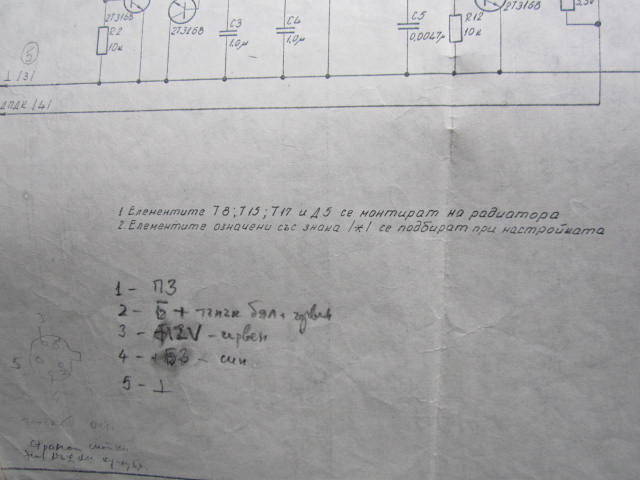 2Т3168
R2
10к
2Т3168
C3
1,0µ
C4
1,0µ
C5
0,0047µ
R12
10к
2Т3168
5
⊥ /3/
ДПДК /4/
1 Елементите Т8; Т15; Т17 и Д5 се монтират на радиатора
2. Елементите означени със знака /*/ се подбират при настройката
1 - ПЗ
2 - Б + тънък бял +
3 - +12V - червен
4 - - син
5 - ⊥
3
5